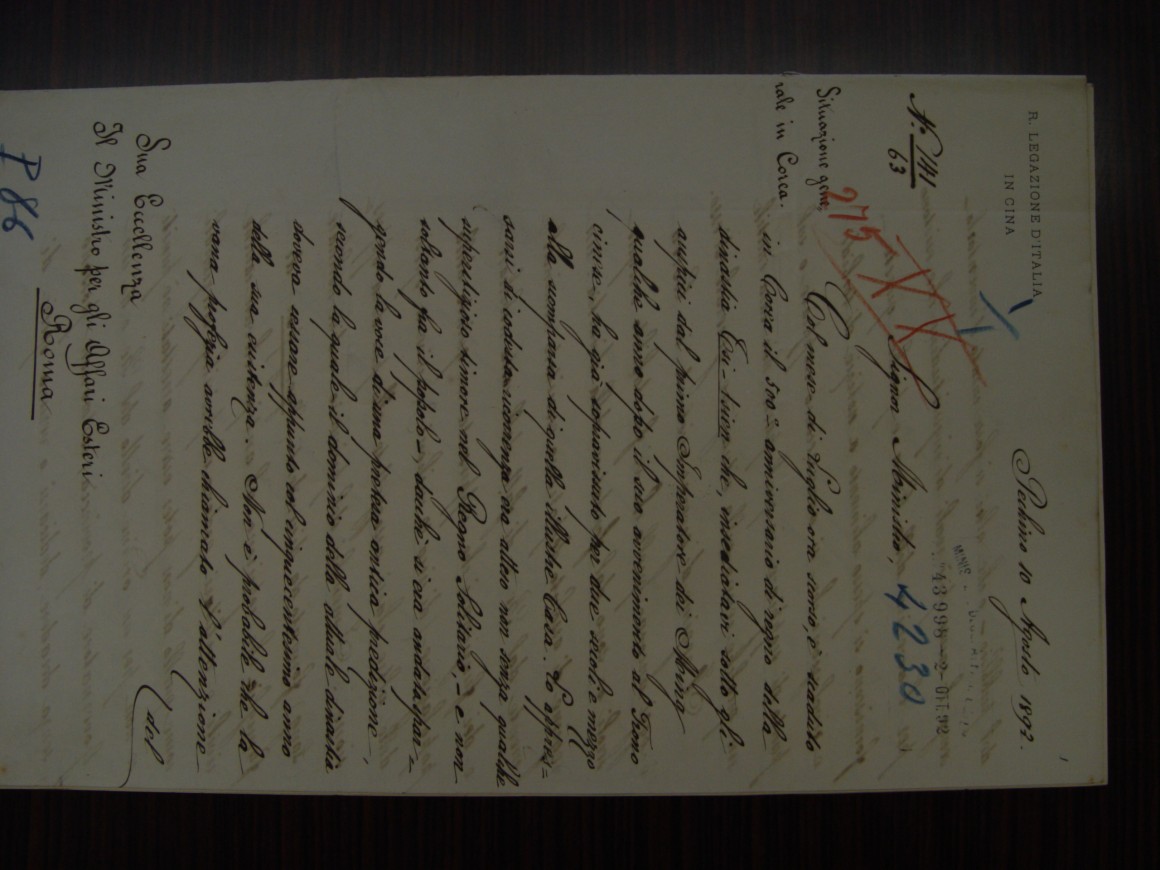 R. LEGAZIONE D'ITALIA
IN CINA
Pechino 10 Agosto 1892.
1
N.º 141
63
MIN
43998 - 2 - OTT. 92
4230
275
XXV
Situazione gene-
rale in Corea.
Signor Ministro,
Col mese di Luglio ora scorso, è scaduto
in Corea il 500º anniversario di regno della
dinastia che, insediatavi sotto gli
auspici dal primo Imperatore dei Ming
qualche anno dopo il suo avvenimento al Trono
cinese, ha già sopravissuto per due secoli e mezzo
alla scomparsa di quella illustre Casa. Lo appres-
sarsi di codesta ricorrenza era atteso non senza qualche
superstizioso timor nel Regno Solitario, - e non
soltanto fra il popolo - dacchè si era andata spar-
gendo la voce di una pretesa antica predizione,
secondo la quale il dominio della attuale dinastia
doveva cessare appunto col cinquecentesimo anno
della sua esistenza. Non è probabile che la
vana profezia avrebbe chiamato l'attenzione
(del
Sua Eccellenza
Il Ministro per gli Affari Esteri
Roma
P 86